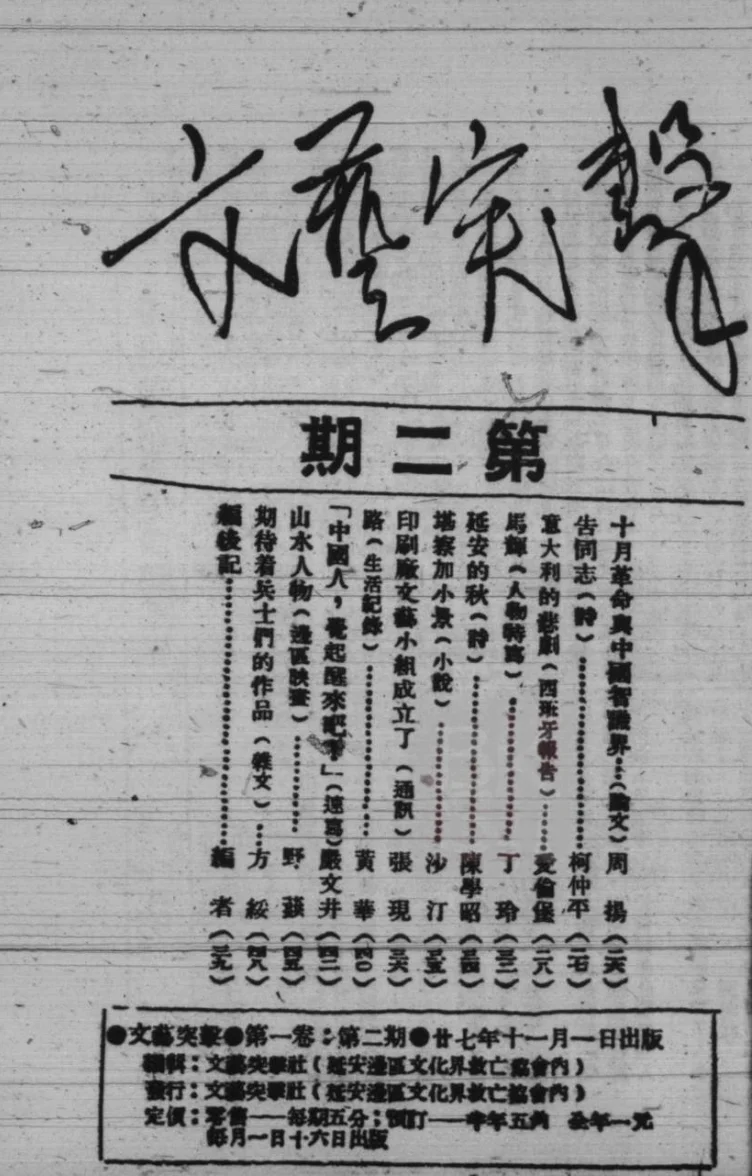 文藝突擊
第二期
十月革命與中國智識界…(論文)周揚(二六)
告同志(詩)…柯仲平(二七)
意大利的悲劇(西班牙報告)…愛倫堡(二八)
馬輝(人物特寫)…丁玲(三三)
延安的秋(詩)…陳學昭(三四)
堪察加小景(小說)…沙汀(三五)
印刷廠文藝小組成立了(通訊)張現(三六)
路(生活紀錄)…黃華(四〇)
「中國人,覺起醒來吧!」(速寫)嚴文井(四二)
山水人物(邊區映畫)…野蕻(四五)
期待着兵士們的作品(雜文)…方綏(四八)
編後記…編者(三九)
●文藝突擊●第一卷:第二期●廿七年十一月一日出版
編輯:文藝突擊社(延安邊區文化界救亡協會內)
發行:文藝突擊社(延安邊區文化界救亡協會內)
定價:零售——每期五分;預訂——半年五角 全年一元
每月一日十六日出版